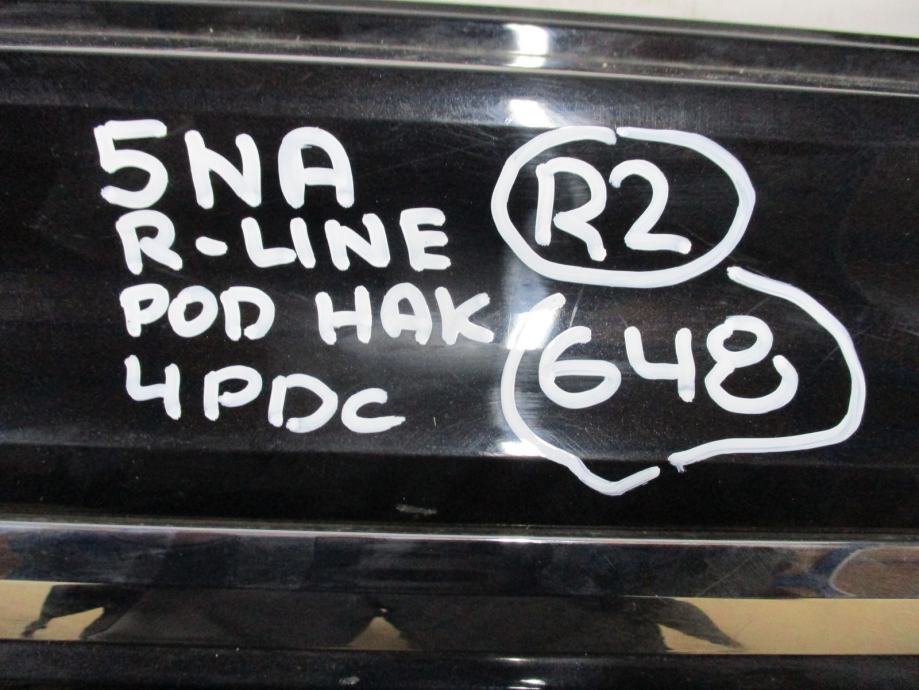 5NA
R-LINE
POD HAK
4PDC
R2
648